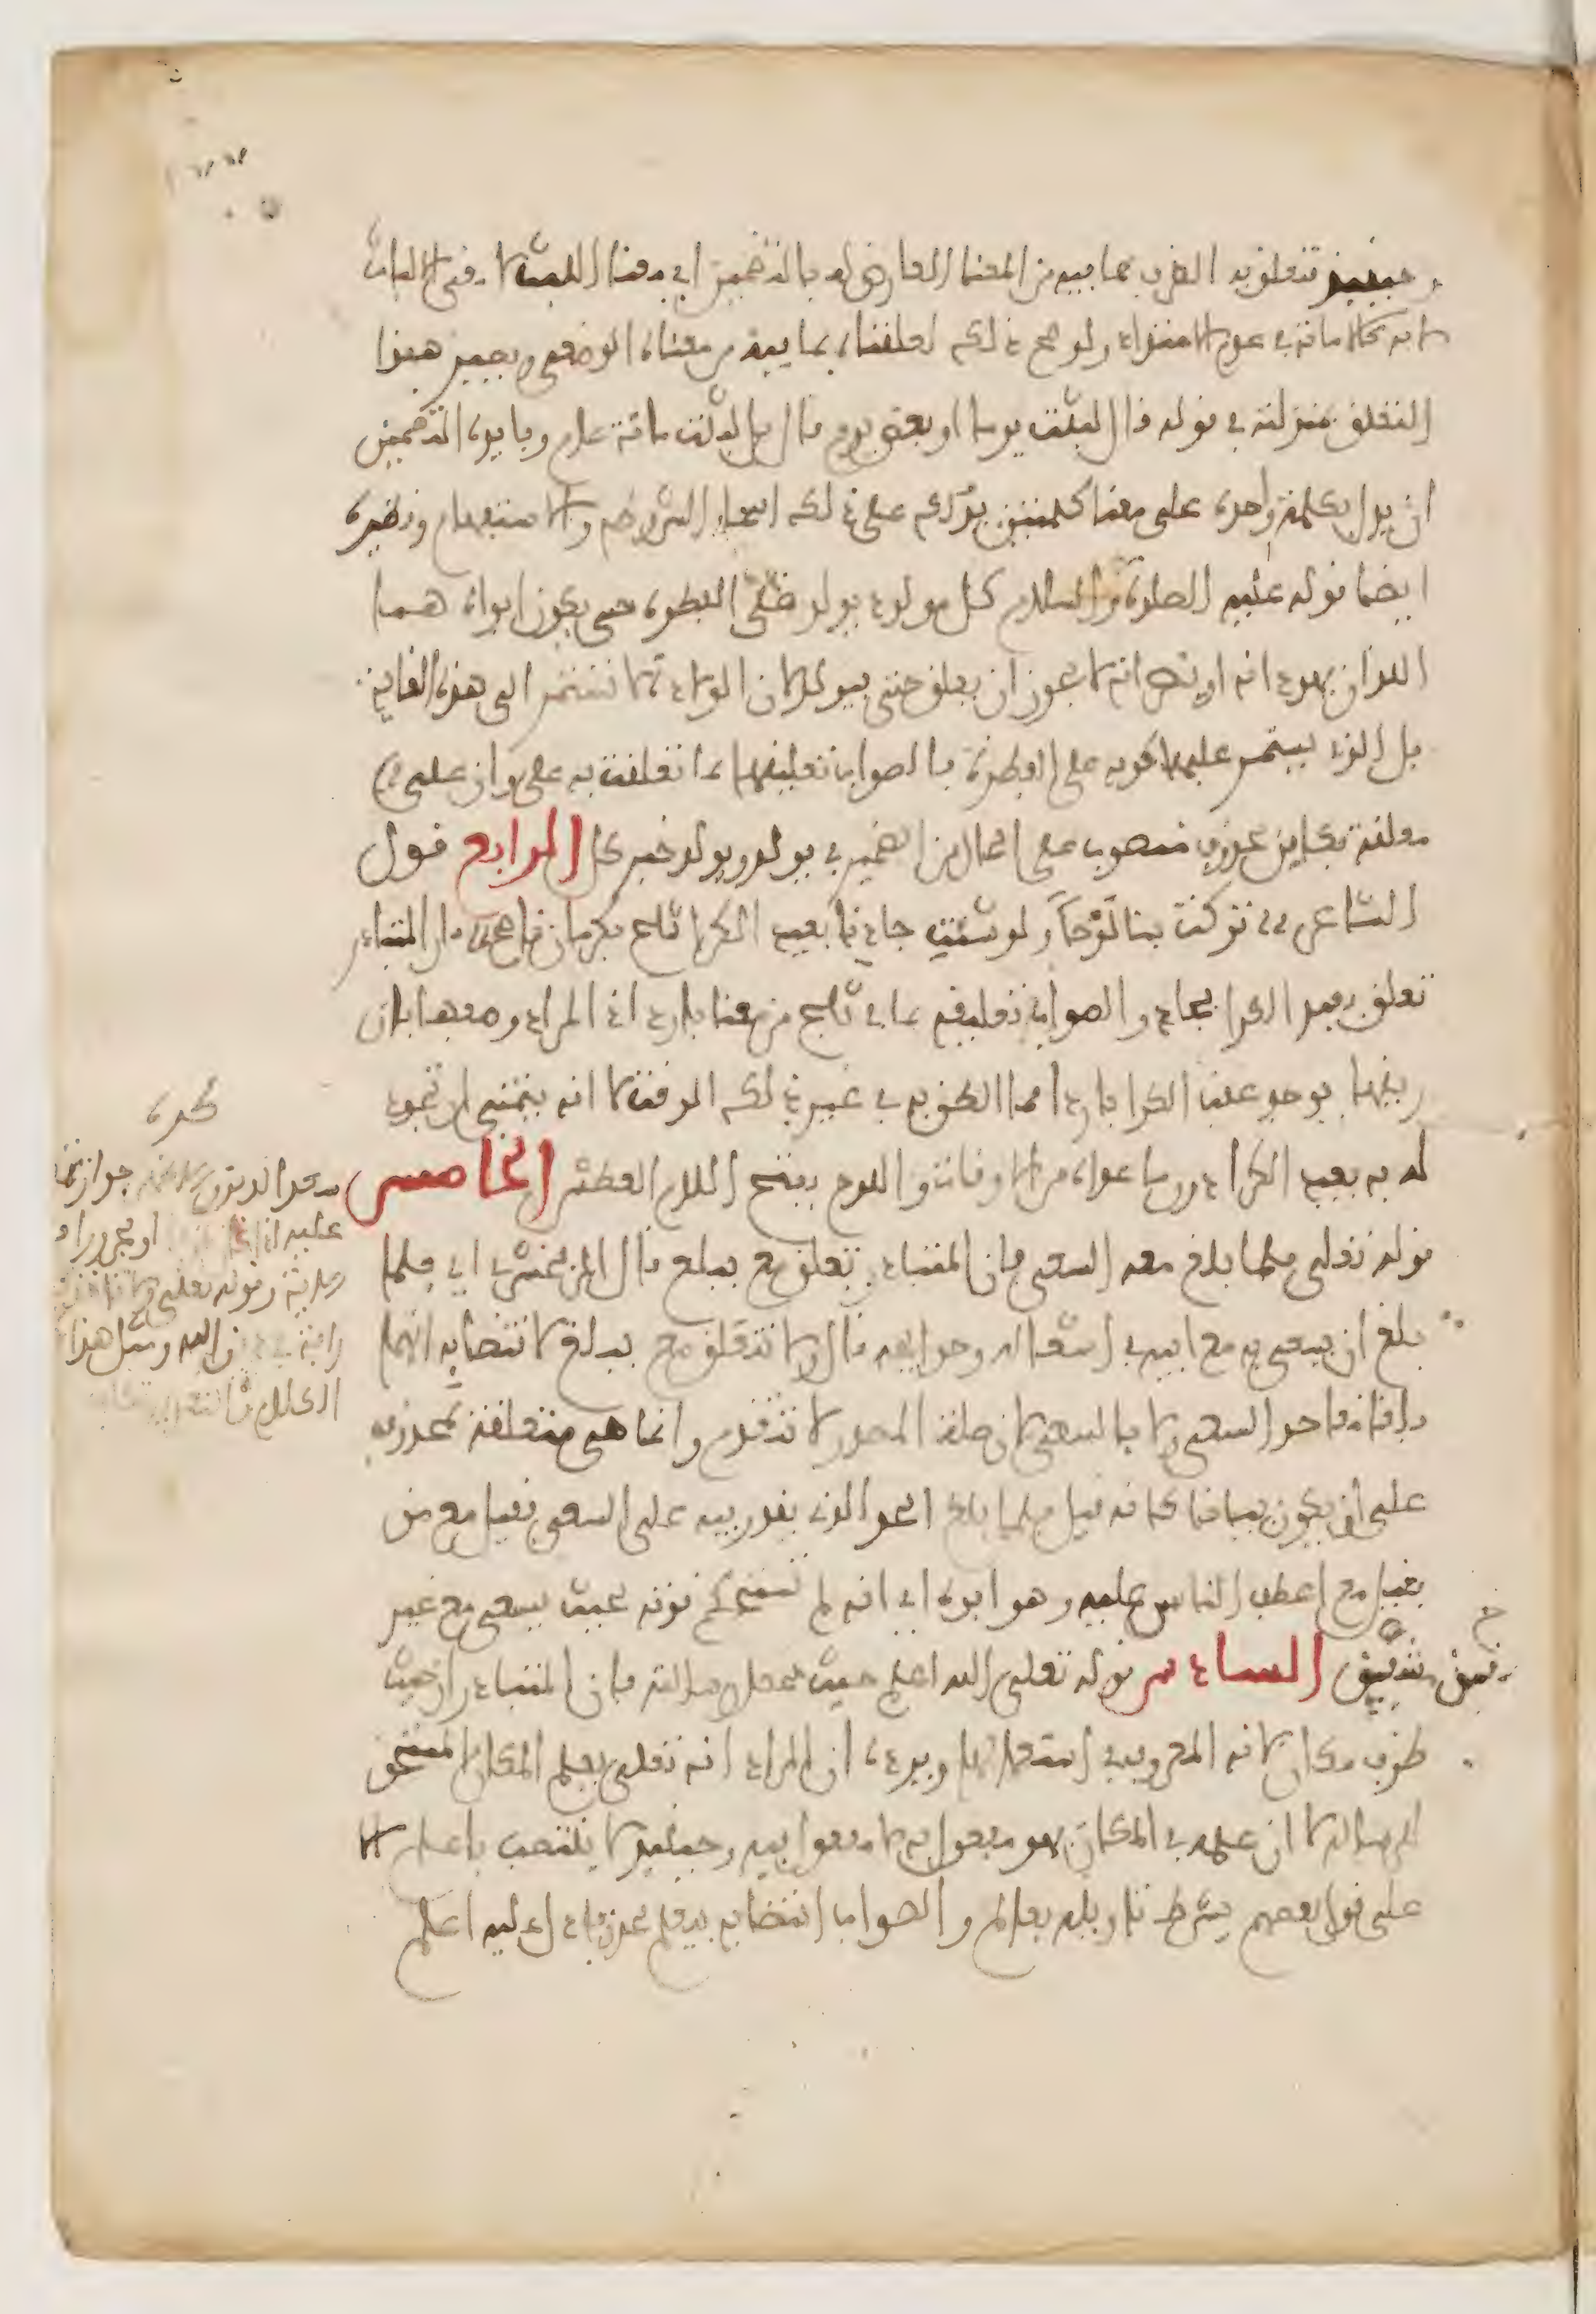 وحينئذ يتعلق به الظرف بما فيه من المعنا العارض له بالتضمين اي معنا اللبث لا معنى الالباث
لانه كالاماتة في عدم الامتداد ولو صح ذلك لعلقناه بما فيه من معناه الوضعي ويصير هذا
التعلق بمنزلته في قوله قال لبثت يوما او بعض يوم قال بل لبثت مائة عام وفايدة التضمين
ان يدل بكلمة واحدة على معنا كلمتين يدلك على ذلك اسماء الشرط والاستفهام ونظيره
ايضا قوله عليه الصلوة والسلام كل مولود يولد على الفطرة حتى يكون ابواه هما
اللذان يهودانه او ينصرانه لا يجوز ان يعلق حتى بيولد لان الولادة لا تستمر الى هذه الغاية
بل الذي يستمر عليها كونه على الفطرة فالصواب تعليقها بما تعلقت به على وان على
متعلقة بكاين محذوف منصوب على الحال من الضمير في يولد ويولد خبر كل الرابع قول
الشاعر تركت بنا لوحا ولو شئت جادنا بعيد الكرا ثلج بكرمان ناصح فان المتبادر
تعلق بعيد الكرا بجاد والصواب تعليقه بما في ثلج من معنا بارد اذ المراد وصفها بان
ريقها يوجد عقب الكرا باردا فما الظن به في غير ذلك الوقت لا انه يتمنى ان تجود
له به بعيد الكرا دون ما عداه من الاوقات واللوح بفتح اللام العطش الخامس
قوله تعلى فلما بلغ معه السعي فان المتبادر تعلق مع ببلغ قال الزمخشري اي فلما
بلغ ان يسعى مع ابيه في اشغاله وحوايجه قال ولا تتعلق مع ببلغ لاقتضايه انهما
بلغا معا حد السعي ولا بالسعي لان صلة المصدر لا تتقدم وانما هي متعلقة بمحذوف
على ان يكون بيانا كانه قيل فلما بلغ الحد الذي يقدر فيه على السعي فقيل مع من
فقيل مع اعطف الناس عليه وهو ابوه اي انه لم تستحكم قوته بحيث يسعى مع غير
مشفق السادس قوله تعلى الله اعلم حيث يجعل رسالته فان المتبادر ان حيث
ظرف مكان لانه المعروف في استعمالها ويرده ان المراد انه تعلى يعلم المكان المستحق
للرسالة لا ان علمه في المكان فهو مفعول به لا مفعول فيه وحينئذ لا ينتصب باعلم الا
على قول بعضهم بشرط تاويله بعالم والصواب انتصابه بيعلم محذوفا دل عليه اعلم
عليه اذا
الله ومثل هذا